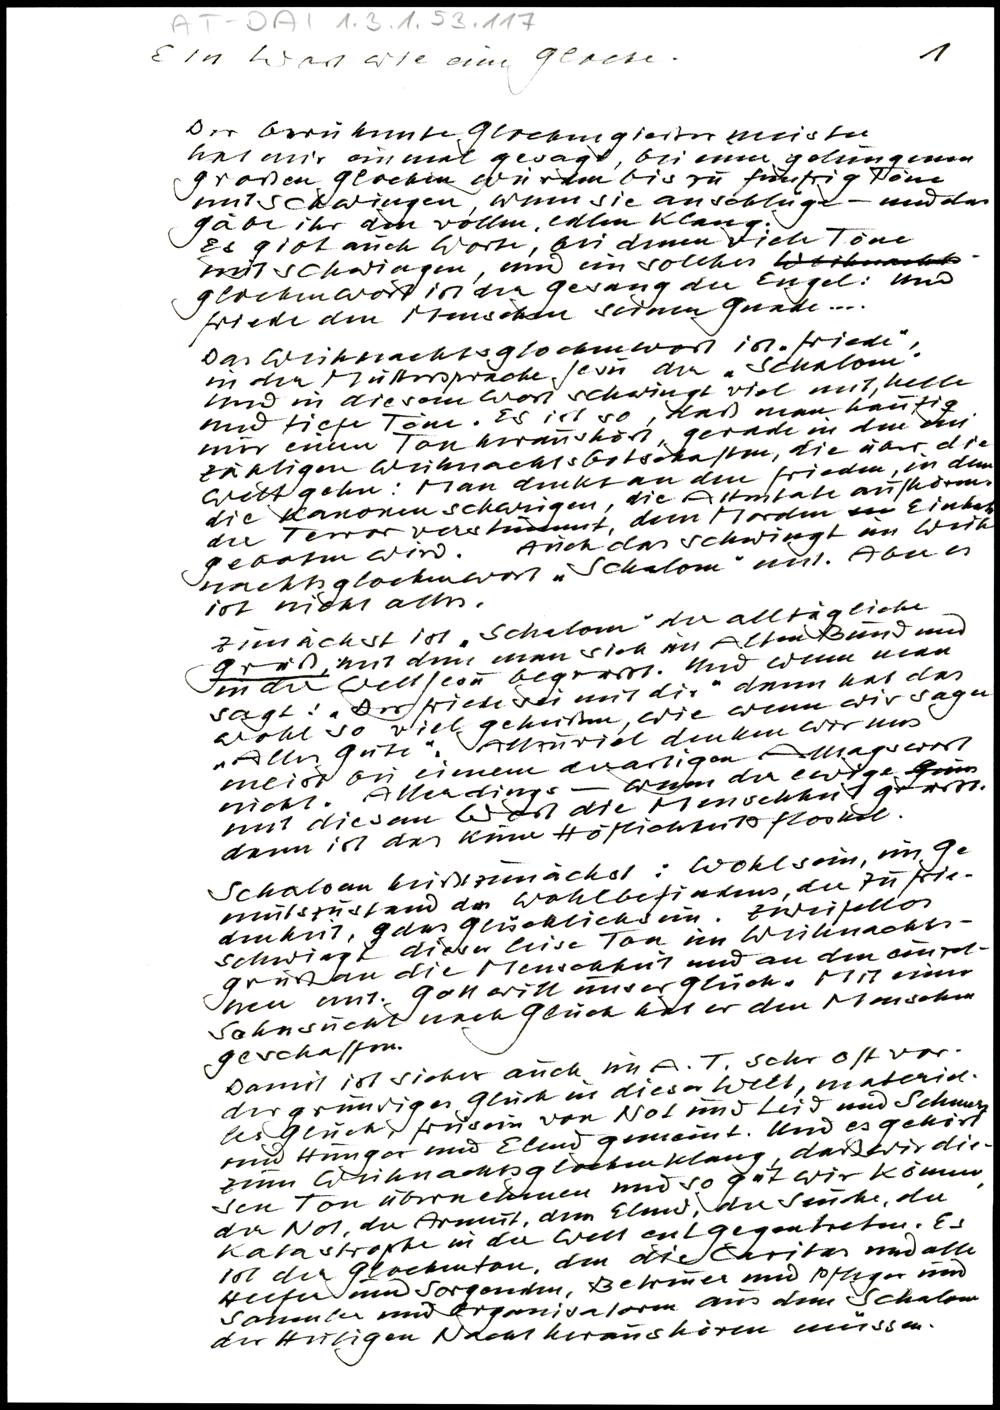 AT-DAI 1.3.1.53.117
Ein Wort wie eine Glocke.
1
Der berühmte Glockengießermeister
hat mir einmal gesagt, bei einer gelungenen
großen Glocke würden bis zu fünfzig Töne
mitschwingen, wenn sie anschlüge – und das
gäbe ihr den vollen, edlen Klang.
Es gibt auch Worte, bei denen viele Töne
mitschwingen, und ein solches Weihnachts-
glockenwort ist der Gesang der Engel: Und
Friede den Menschen seiner Gnade....
Das Weihnachtsglockenwort ist „Friede",
in der Muttersprache Jesu der „Schalom".
Und in diesem Wort schwingt viel mit, helle
und tiefe Töne. Es ist so, daß man häufig
nur einen Ton heraushört, gerade in den un
zähligen Weihnachtsbotschaften, die über die
Welt gehn: Man denkt an den Frieden, in dem
die Kanonen schweigen, die Attentate aufhören,
der Terror verstummt, dem Morden Einhalt
geboten wird. Auch das schwingt im Weih
nachtsglockenwort „Schalom" mit. Aber es
ist nicht alles.
Zunächst ist „Schalom" der alltägliche
Gruß, mit dem man sich im Alten Bund und
in der Welt Jesu begrüßt. Und wenn man
sagt: „Der Friede sei mit dir" dann hat das
wohl so viel geheißen, wie wenn wir sagen
„Alles Gute". Allzuviel denken wir uns
meist bei einem derartigen Alltagswort
nicht. Allerdings – wenn der ewige
mit diesem Wort die Menschheit grüßt.
dann ist das keine Höflichkeitsfloskel.
Schalom heißt zunächst: Wohlsein, im Ge
mütszustand des Wohlbefindens, der Zufrie-
denheit, des Glücklichseins. Zweifellos
schwingt dieser leise Ton im Weihnachts-
gruß an die Menschheit und an den einzel-
nen mit. Gott will unser Glück. Mit einer
Sehnsucht nach Glück hat er den Menschen
geschaffen.
Damit ist sicher auch im A.T. sehr oft vor-
dergründiges Glück in dieser Welt, materiel-
les Glück, Freisein von Not und Leid und Schmerz
und Hunger und Elend gemeint. Und es gehört
zum Weihnachtsglockenklang, daß wir die-
sen Ton übernehmen und so gut wir können,
der Not, der Armut, dem Elend, der Seuche, der
Katastrophe in der Welt entgegentreten. Es
ist der Glockenton, den die Caritas und alle
Helfer und Sorgenden, Betreuer und Pfleger und
Sammler und Organisatoren aus dem Schalom
der Heiligen Nacht heraushören müssen.